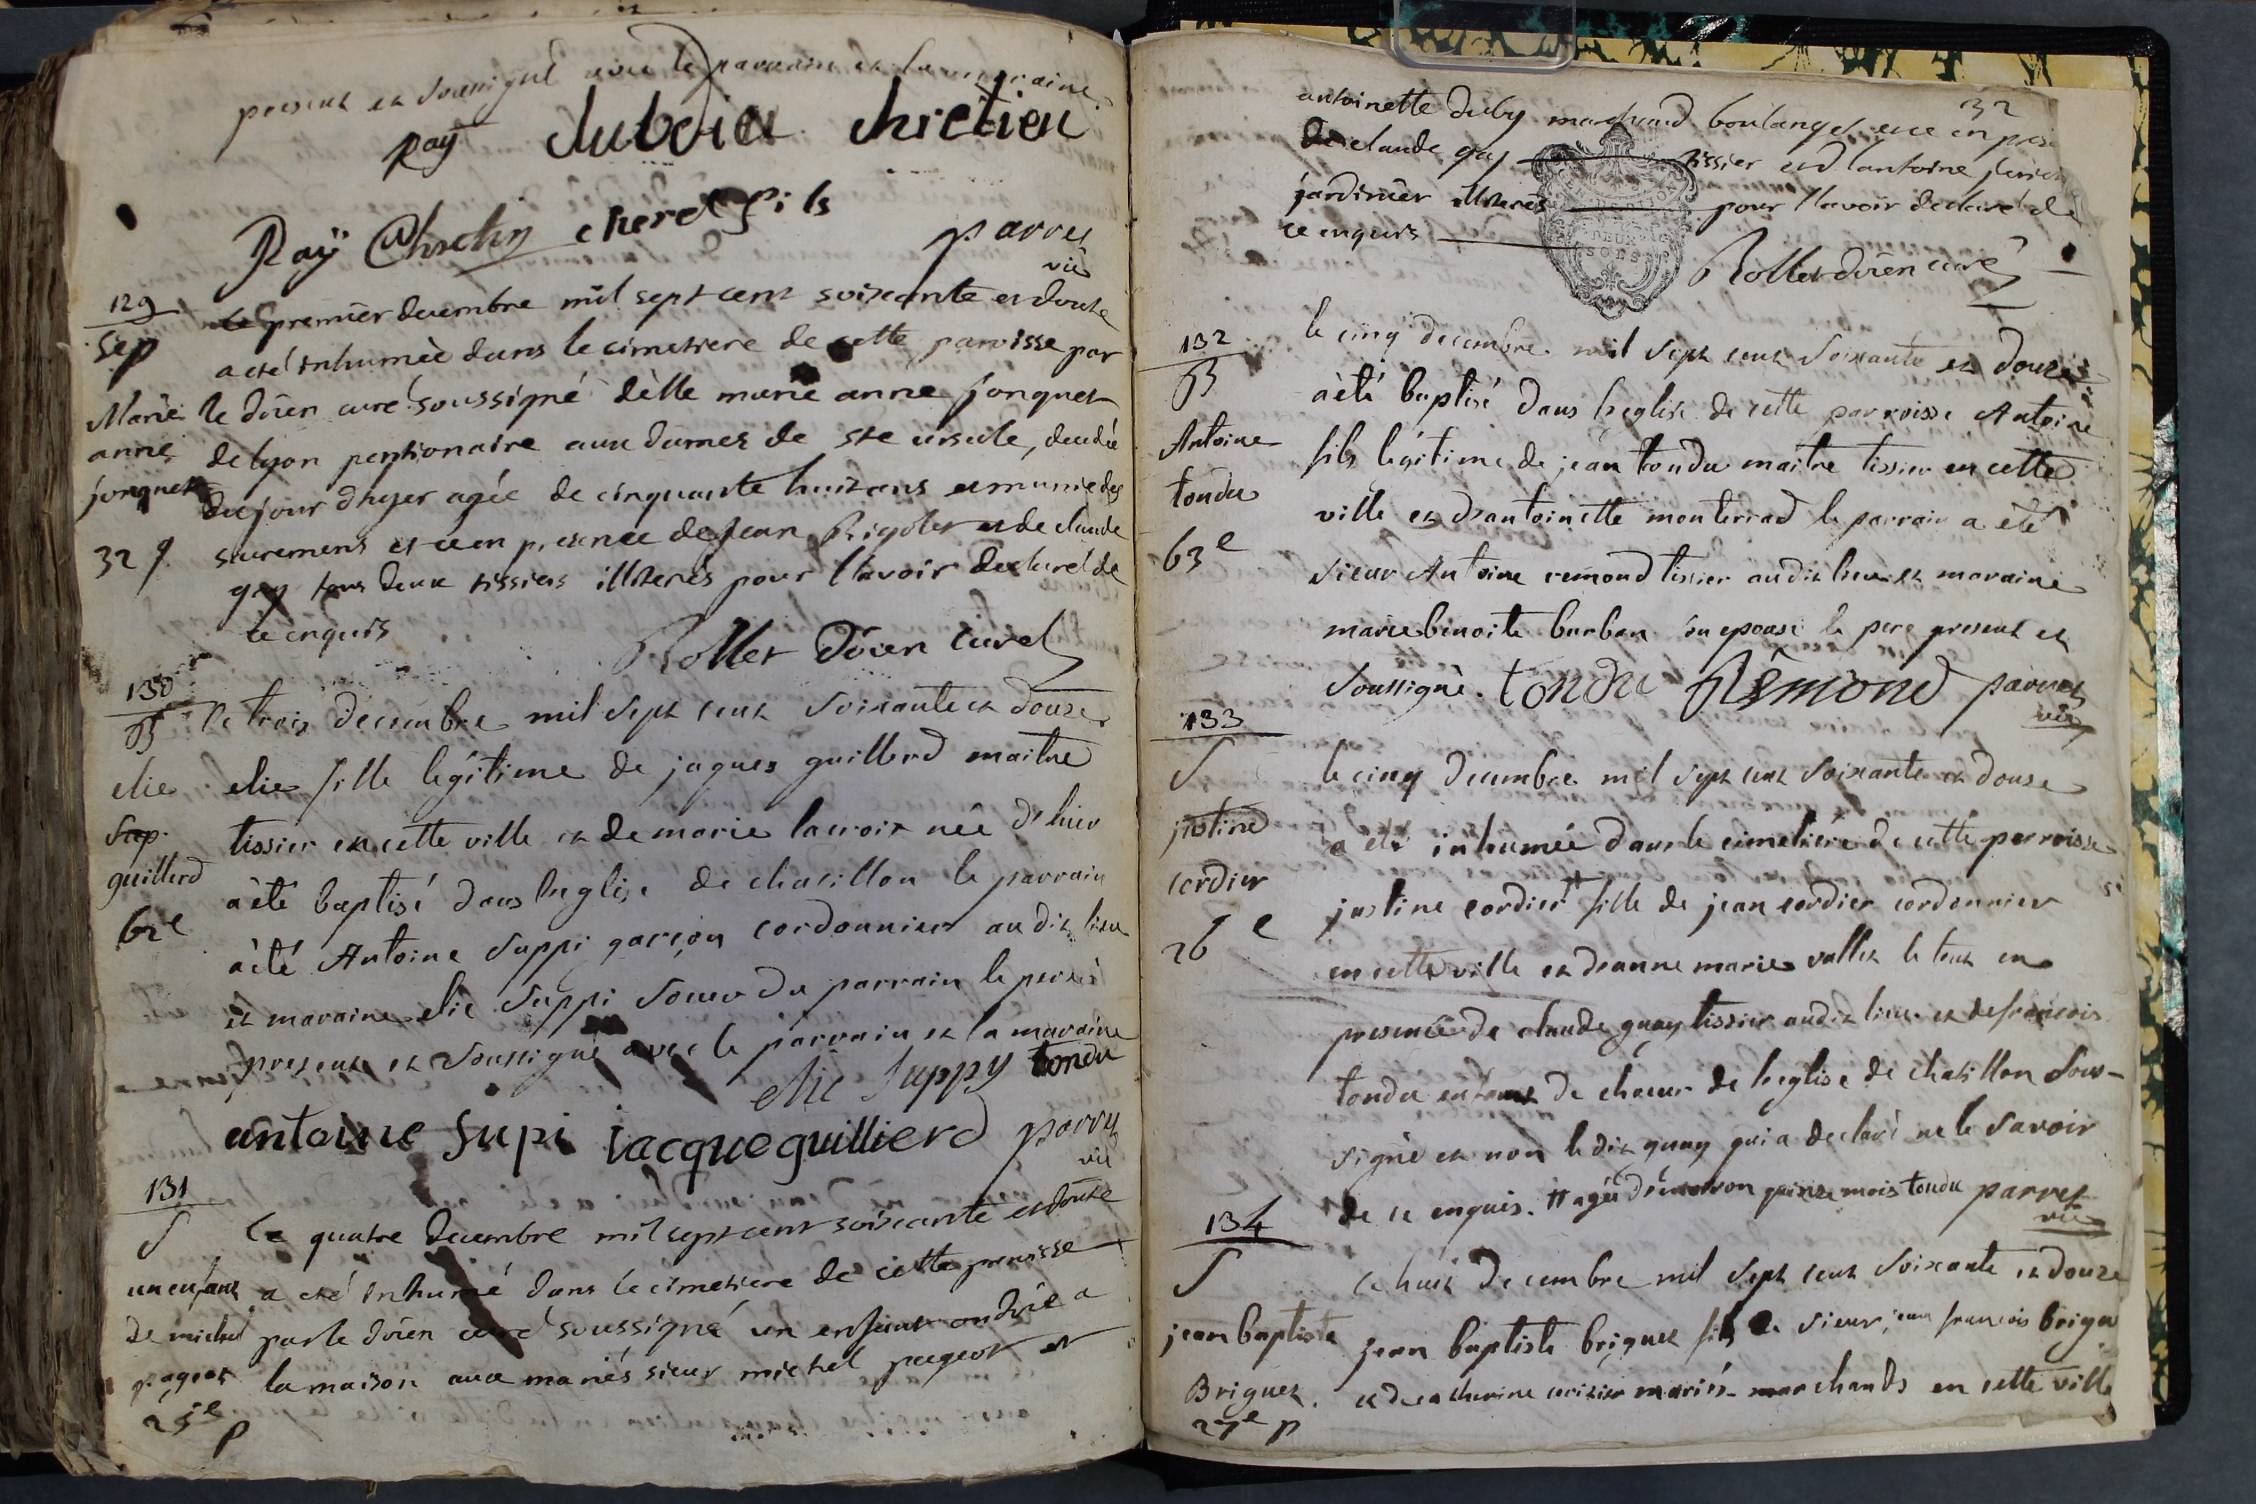 present et soussigné avec le parrain et la maraine.
pay dubois chretien
Raÿ Chretin cheret fils
parret
vic
129
Sep
Marie
anne
jonquet
32 f
le premier decembre mil sept cent soixante et douze
a eté inhumèe dans le cimetiere de cette paroisse par
le doïen curé soussigné dèlle marie anne jonquet
de lyon pentionaire aux dames de ste ursule, decedée
du jour d'hyer agée de cinquante huit ans et munie des
sacremens et ce en presence de jean Rigolet et de claude
gay tous deux tissiers illiterés pour l'avoir declaré de
ce enquis
Rollet doïen curé
130
B
elie
Sup.
guillerd
62e
le trois decembre mil sept cent soixante et douze
elie fille legitime de jaques guillerd maitre
tissier en cette ville et de marie lacroix née d'hier
a èté baptisé dans l'eglise de chatillon le parrain
à èté Antoine Suppi garçon cordonnier au dit lieu
et maraine elie Suppi soeur du parrain le pere
present et soussigné avec le parrain et la maraine
elie Suppy tondu
antoine supi jacque guillierd parret
vic
131
S
un enfant
de michel
pageot
25e p
le quatre decembre mil sept cent soixante et douze
a eté inhumé dans le cimetiere de cette paroisse
par le doïen curé soussigné un enfant ondoïé a
la maison aux mariés sieur michel pageot et
32
antoinette duby marchand boulanger et ce en prese
de claude gay tissier et d'antoine
jardinier illiterés pour l'avoir declaré de
ce enquis
Rollet doïen curé
132
B
Antoine
tondu
63e
le cinq decembre mil sept cent soixante et douze
a èté baptisé dans l'eglise de cette parroisse Antoine
fils légitime de jean tondu maitre tissier en cette
ville et d'antoinette monterrad le parrain a èté
sieur Antoine remond tissier au dit lieu et maraine
marie benoite burban son epouse le pere present et
soussignè. tondu Rémond parret
vic
133
S
justine
cordier
26e
le cinq decembre mil sept cent soixante et douze
a èté inhumée dans le cimetiére de cette parroisse
justine cordier # fille de jean cordier cordonnier
en cette ville et d'anne marie vallet le tout en
presence de claude guay tissier audit lieu et de françois
tondu enfant de choeur de l'eglise de chatillon sous-
signè et non le dit guay qui a declaré ne le savoir
de ce enquis. # agée d'environ quinze mois tondu parret
vic
134
S
jean baptiste
Briguet.
27e p
le huit decembre mil sept cent soixante et douze
jean baptiste briguet fils de sieur jean françois brigu
et de catherine cerisier mariés marchands en cette ville